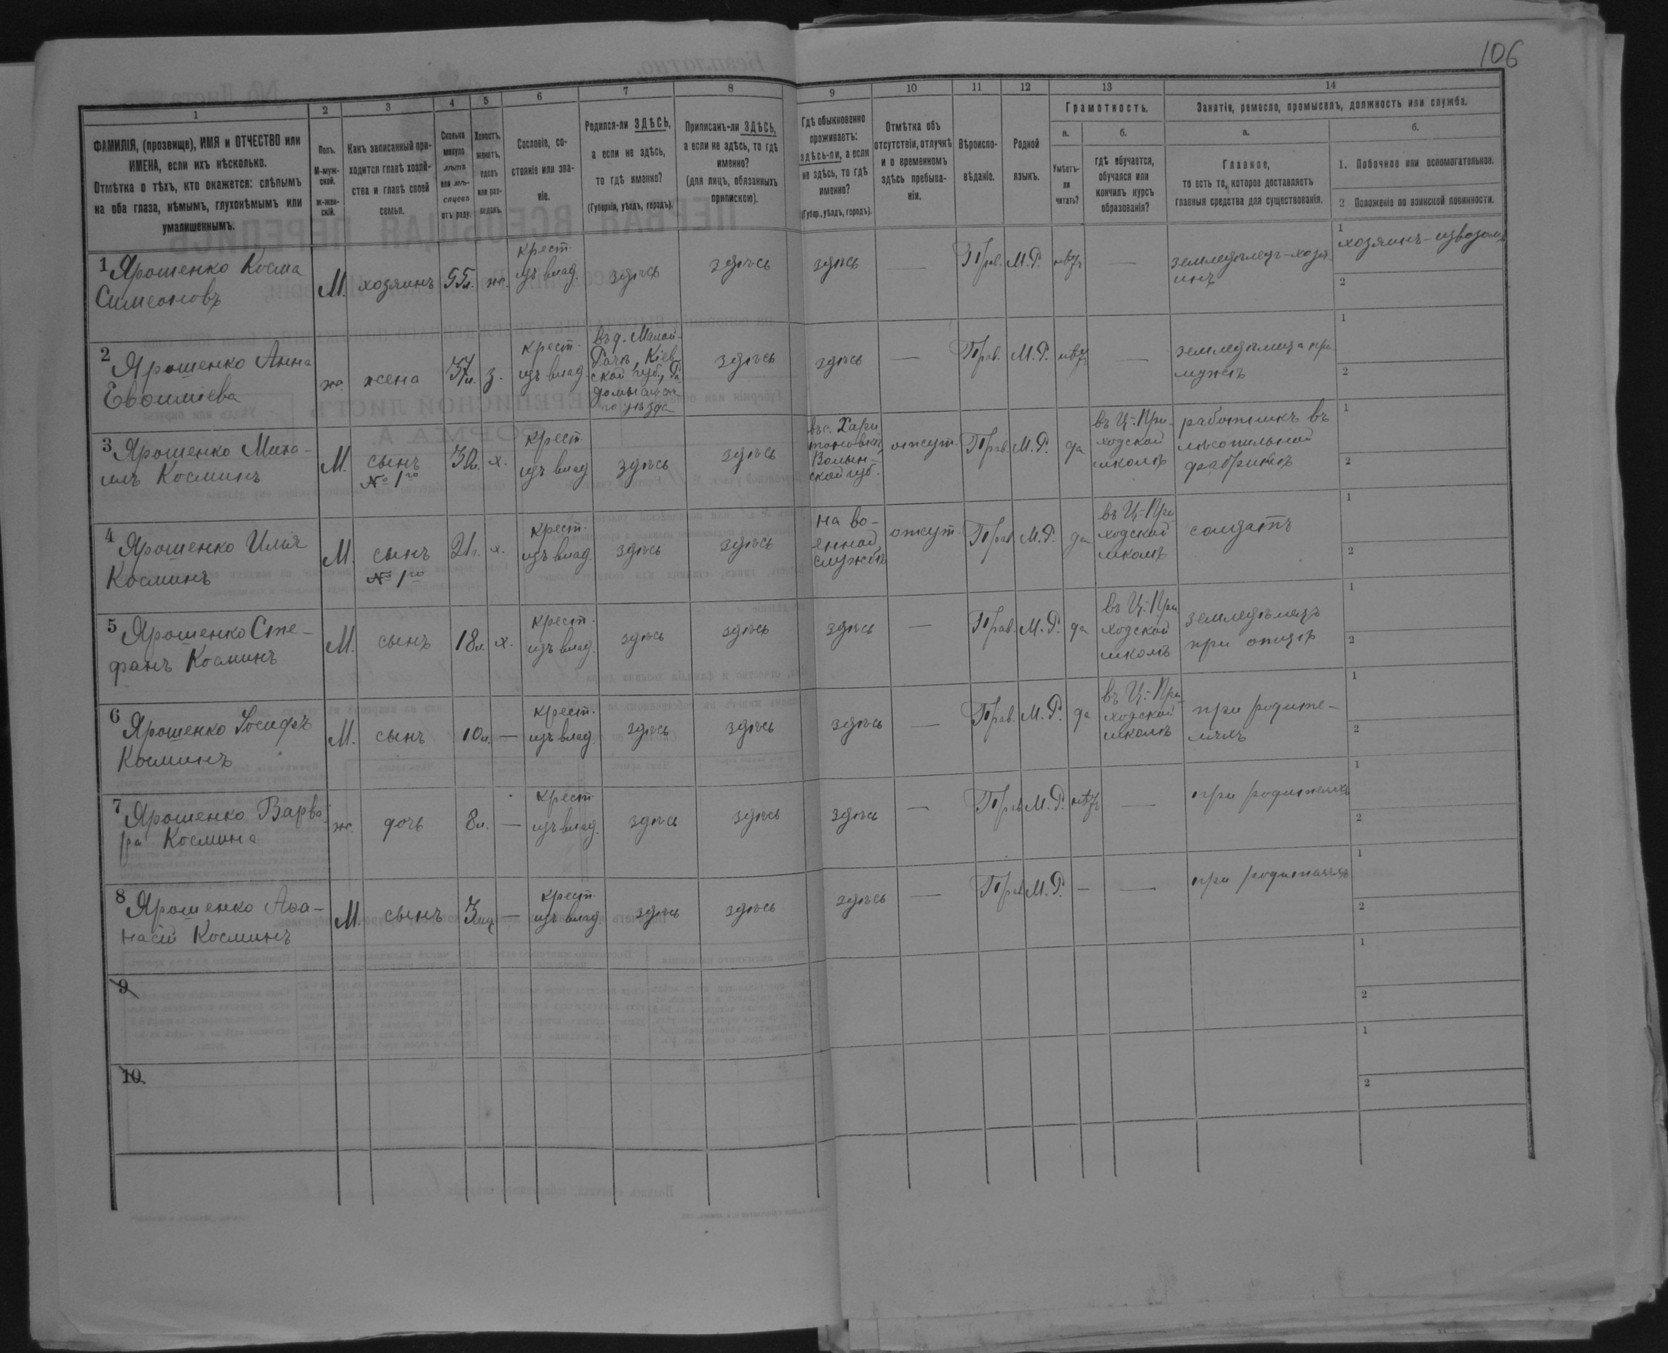 106
1
2
3
4
5
6
7
8
9
10
11
12
13
14
ФАМИЛІЯ, (прозвище), ИМЯ и ОТЧЕСТВО или
ИМЕНА, если ихъ нѣсколько.
Отмѣтка о тѣхъ, кто окажется: слѣпымъ
на оба глаза, нѣмымъ, глухонѣмымъ или
умалишеннымъ.
Полъ.
М-муж-
ской.
ж-жен-
скій.
Какъ записанный при-
ходится главѣ хозяй-
ства и главѣ своей
семьи.
Сколько
минуло
лѣтъ
или мѣ-
сяцевъ
отъ роду.
Холостъ,
женатъ,
вдовъ
или раз-
веденъ.
Сословіе, со-
стояніе или зва-
ніе.
Родился-ли ЗДѢСЬ,
а если не здѣсь,
то гдѣ именно?
(Губернія, уѣздъ, городъ).
Приписанъ-ли ЗДѢСЬ,
а если не здѣсь, то гдѣ
именно?
(для лицъ, обязанныхъ
припискою).
Гдѣ обыкновенно
проживаетъ:
здѣсь-ли, а если
не здѣсь, то гдѣ
именно?
(Губер., уѣздъ, городъ).
Отмѣтка объ
отсутствіи, отлучкѣ
и о временномъ
здѣсь пребыва-
ніи.
Вѣроиспо-
вѣданіе.
Родной
языкъ.
Грамотность.
а.
б.
Умѣетъ-
ли
читать?
гдѣ обучается,
обучался или
кончилъ курсъ
образованія?
Занятіе, ремесло, промыселъ, должность или служба.
а.
б.
Главное,
то есть то, которое доставляетъ
главныя средства для существованія.
1. Побочное или вспомогательное.
2 Положеніе по воинской повинности.
1 Ярошенко Косма
Симеоновъ
М.
хозяинъ
55 л.
ж.
крест.
изъ влад.
здѣсь
здѣсь
здѣсь
—
Прав.
М. Р.
нѣтъ
—
земледѣлецъ-хозя
инъ
1
хозяинъ-
2
2 Ярошенко Анна
Евѳиміева
ж.
жена
з.
крест.
изъ влад
въ д. Малой-
Рачѣ, Кіев
ской губ., Ра
домысльска
го уѣзда
здѣсь
здѣсь
—
Прав.
М. Р.
нѣтъ
—
при
мужѣ
1
2
3 Ярошенко Миха-
илъ Косминъ
М.
сынъ
№ 1го
х.
крест.
изъ влад
здѣсь
здѣсь
въ с. Хари
тоновкѣ,
Волын-
ской губ.
отсут.
Прав.
М. Р.
да
въ Ц.-При
ходской
школѣ
работникъ въ
лѣсопильной
фабрикѣ
1
2
4 Ярошенко Илія
Косминъ
М.
сынъ
№ 1го
21 г.
х.
крест.
изъ влад.
здѣсь
здѣсь
на во-
енной
службѣ
отсут.
Прав.
М. Р.
да
въ Ц.-При
ходской
школѣ
солдатъ
1
2
5 Ярошенко Сте-
фанъ Косминъ
М.
сынъ
18 л.
х.
крест.
изъ влад.
здѣсь
здѣсь
здѣсь
—
Прав.
М. Р.
да
въ Ц.-При
ходской
школѣ
земледѣлецъ
при отцѣ
1
2
6 Ярошенко Іосифъ
Косминъ
М.
сынъ
10 л.
—
крест.
изъ влад.
здѣсь
здѣсь
здѣсь
—
Прав.
М. Р.
да
въ Ц.-При
ходской
школѣ
при родите-
ляхъ
1
2
7 Ярошенко Варва
ра Космина
ж.
дочь
8 л.
—
крест.
изъ влад.
здѣсь
здѣсь
здѣсь
—
Прав.
М. Р.
нѣтъ
—
при родителяхъ
1
2
8 Ярошенко Аѳа-
насій Косминъ
М.
сынъ
—
крест.
изъ влад.
здѣсь
здѣсь
здѣсь
—
Прав.
М. Р.
—
—
при родителяхъ
1
2
9
1
2
10
1
2